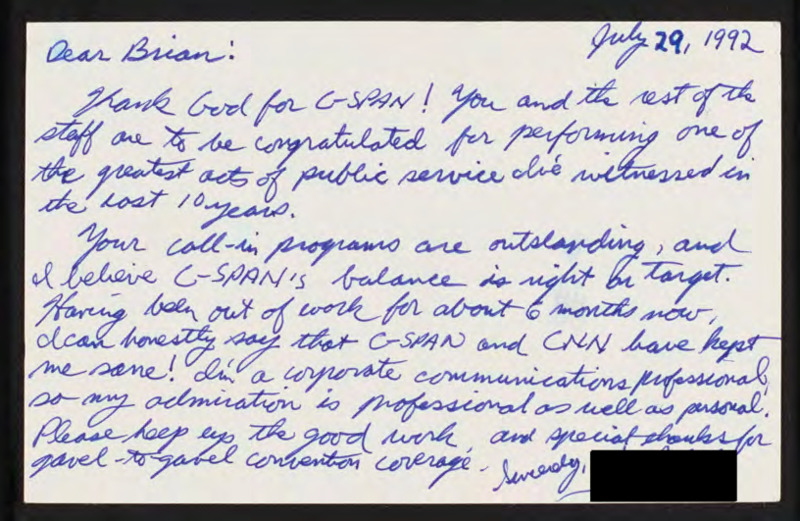 July 29, 1992
Dear Brian:
Thank God for C-SPAN! You and the rest of the
staff are to be congratulated for performing one of
the greatest acts of public service I've witnessed in
the last 10 years.
Your call-in programs are outstanding, and
I believe C-SPAN's balance is right on target.
Having been out of work for about 6 months now,
I can honestly say that C-SPAN and CNN have kept
me sane! I'm a corporate communications professional,
so my admiration is professional as well as personal.
Please keep up the good work and special thanks for
gavel-to-gavel convention coverage.
Sincerely,